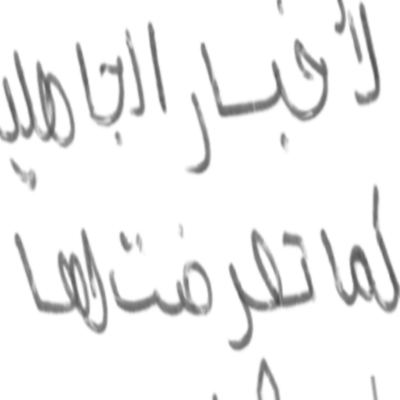 لأخبار الجاهلي
كما تعرضت لها